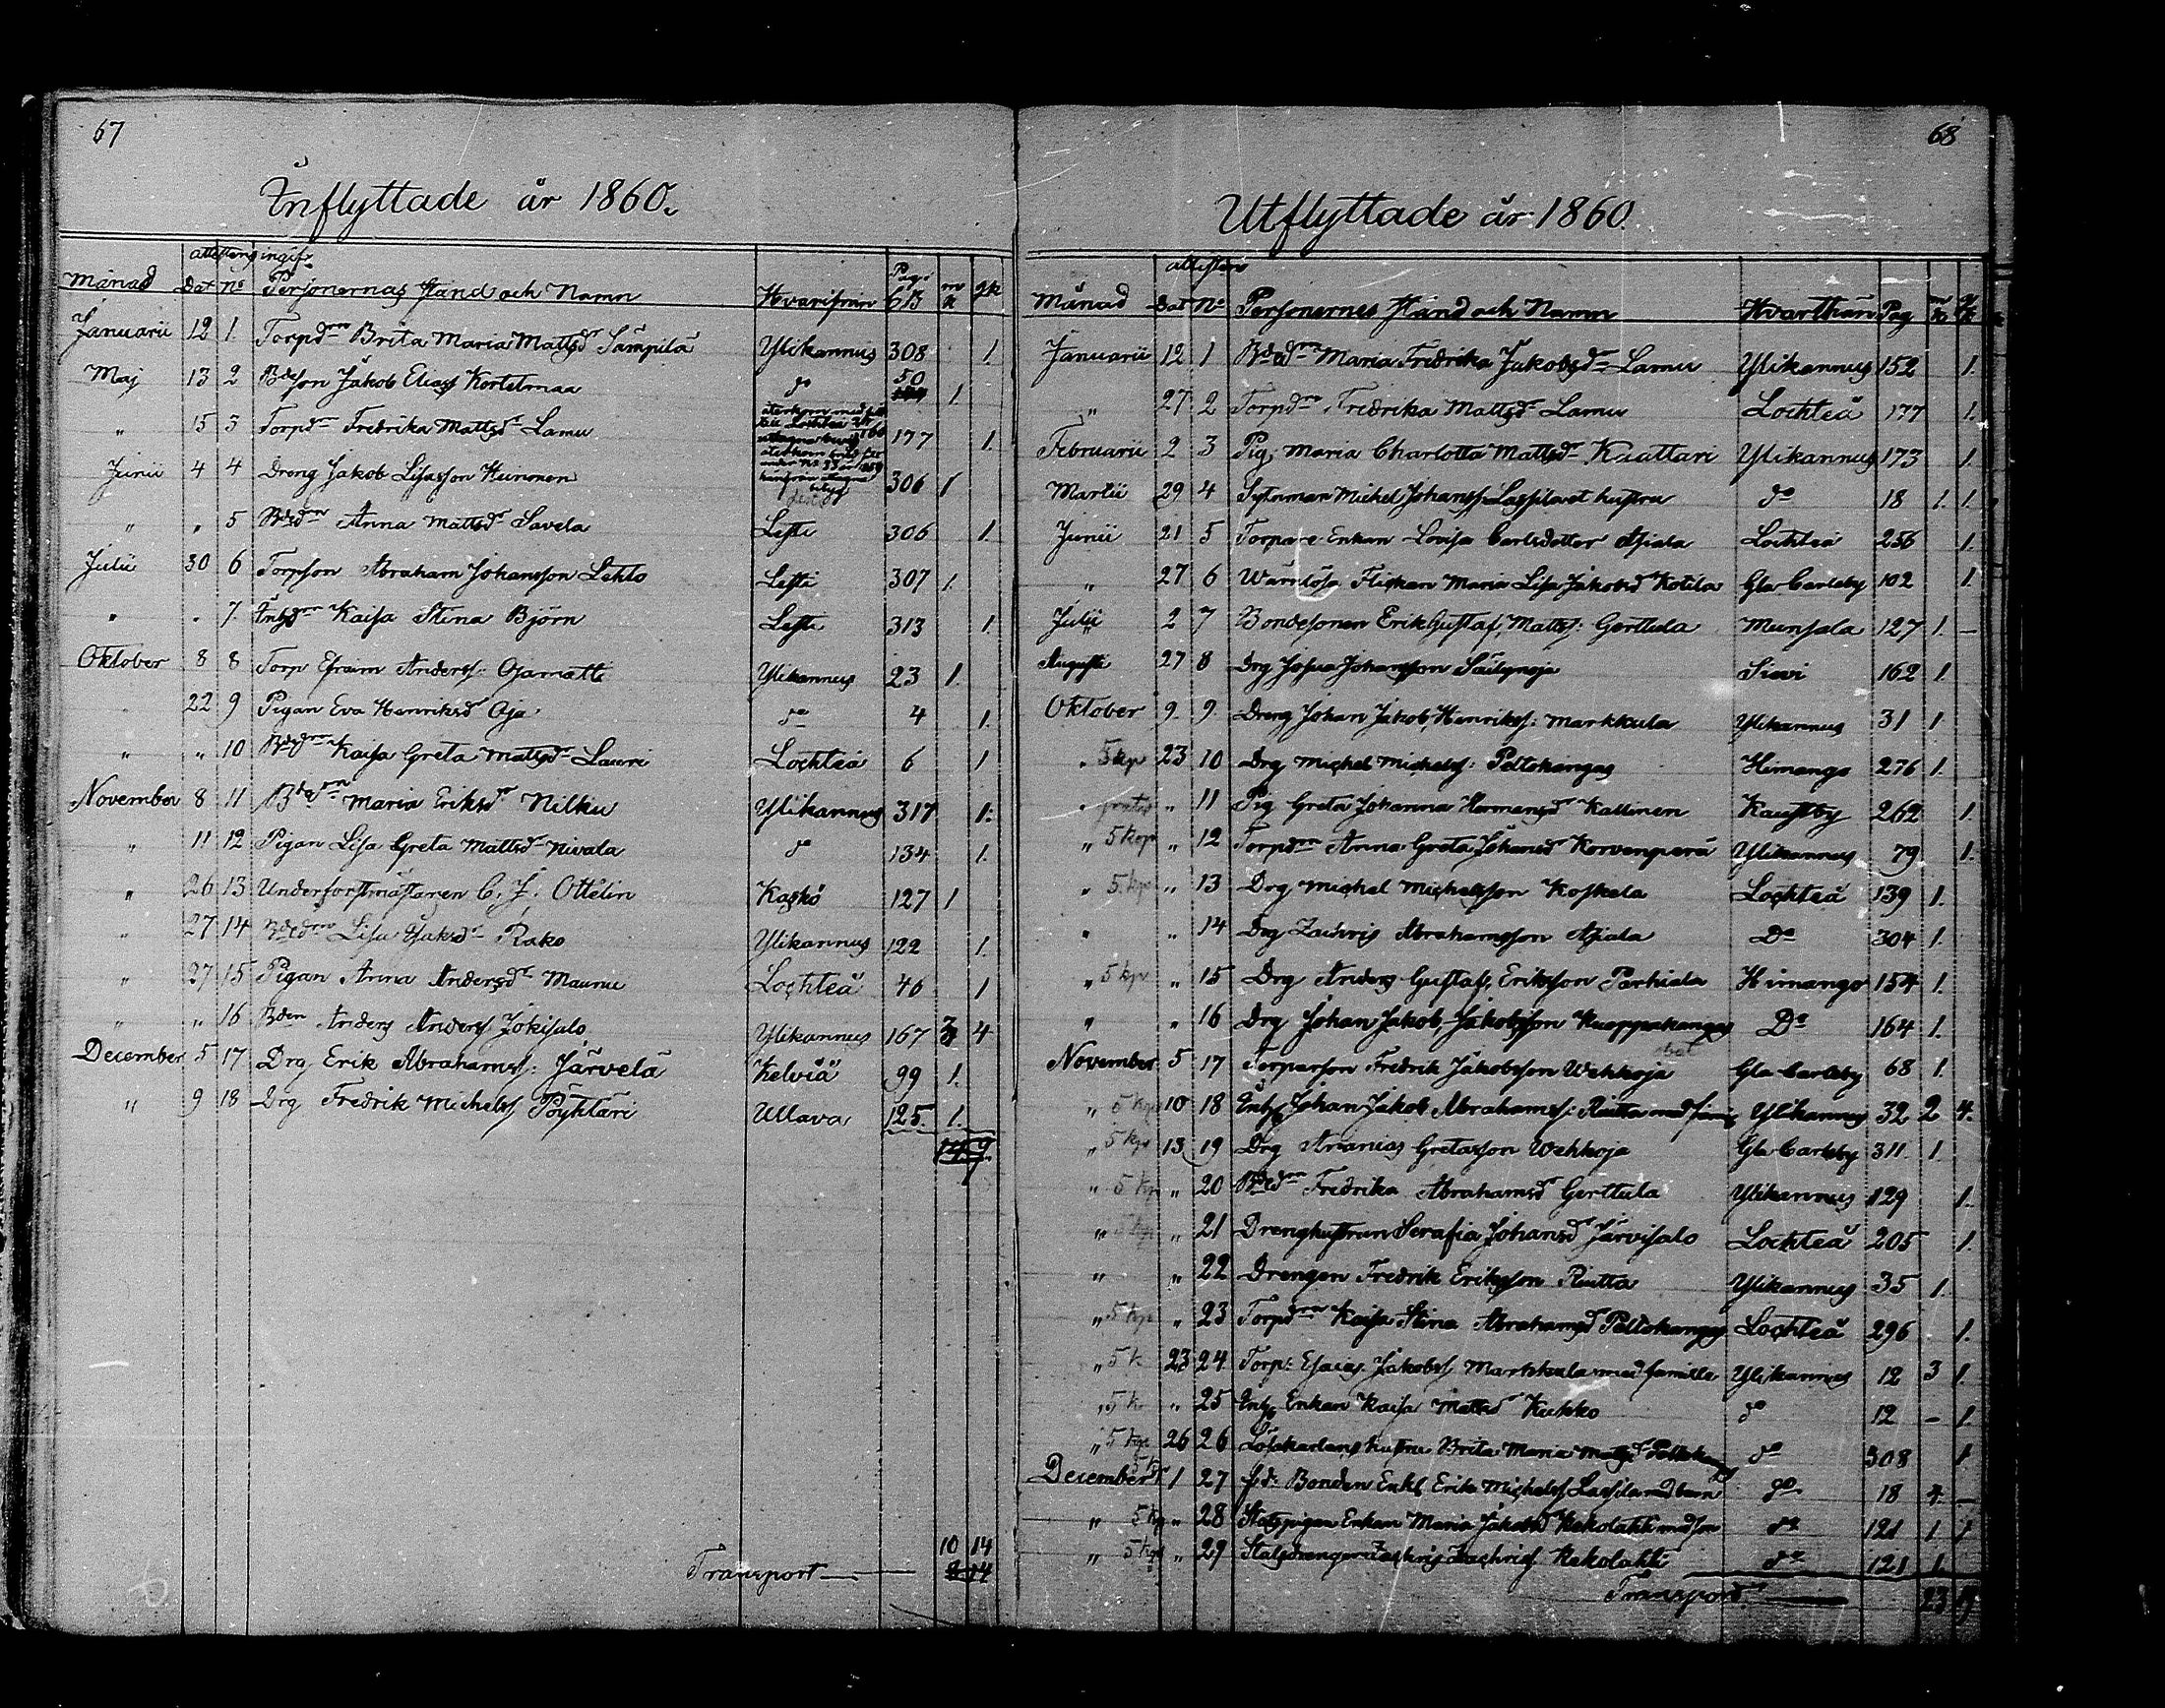 67
Inflyttade år 1860.
attestens ingifv.
Månad Dat No Personernas stånd och Namn Hvarifrån Pag i CB mk qk
Januarii 12 1. Torpdrn Brita Maria Mattsdr Sämpilä Ylikannus 308 1.
Maj 13 2 Bdeson Jakob Eliass Kortetmaa do 50 1.
" 15 3 Torpdr Fredrika Mattsdr Lamu 177 1.
Junii 4 4 Dreng Jakob Lisasson Heinonen 306 1
" " 5 Bdedrn Anna Mattsdr Savela Lesti 306 1.
Julii 30 6 Torpson Abraham Johansson Lehto Lesti 307 1.
" " 7. Inhdrn Kaisa Stina Björn Lesti 313 1.
Oktober 8 8 Torp Efraim Anderss: Ojamatti Ylikannus 23 1.
22 9 Pigan Eva Henriksdr Oja do 4 1.
" " 10 Bdedrn Kaisa Greta Mattsdr Lauri Lochteå 6 1
November 8 11 Bdedrn Maria Eriksdr Nilku Ylikannus 317 1.
" 11 12 Pigan Lisa Greta Mattsdr Nivala do 134 1.
" 26 13 Underforstmästaren C. J. Ottelin Kaskö 127 1
" 27 14 Bdedrn Lisa Isaksdr Rako Ylikannus 122 1.
" 27 15 Pigan Anna Andersdr Maunu Lochteå 46 1
" " 16 Bden Anders Anderss Jokisalo Ylikannus 167 3 4
December 5 17 Drg Erik Abrahamss: Järvelä Kelviå 99 1.
" 9 18 Drg Fredrik Michelss Pöyhtäri Ullava 125. 1.
10 14
Transport
68
Utflyttade år 1860.
attestens
Månad Dat No Personernes stånd och Namn Hvarthän Pag mk qk
Januarii 12 1 Bdedrn Maria Fredrika Jakobsdr Lamu Ylikannus 152 1.
" 27 2 Torpdrn Fredrika Mattsdr Lamu Lochteå 177 1.
Februarii 2 3 Pig. Maria Charlotta Mattsdr Kuattari Ylikannus 173 1.
Martii 29 4 Sytnman Michel Johanss: Lassila et hustru do 18 1. 1.
Junii 21 5 Torpare Enkan Lovisa Carlsdotter Asiala Lochteå 256 1.
" 27 6 Wärnlösa Flickan Maria Lisa Jakobsd Kotila Gla Carleby 102 1.
Julii 2 7 Bondesonen Erik Gustaf, Mattss: Gerttula Munsala 127 1. –
Augusti 27 8 Drg Josua Johansson Säilynoja Siewi 162 1.
Oktober 9 9 Dreng Johan Jakob, Henrikss: Markkula Ylikannus 31 1
" 5 kp 23 10 Drg Michel Michelss: Peltokangas Himango 276 1.
" gratis " 11 Pig Greta Johanna Hermansdr Kallinen Kaustby 262 1.
" 5 kop " 12 Torpdrn Anna Greta Johansdr Korvenperä Ylikannus 79 1.
" 5 kp " 13 Drg Michel Michelsson Koskela Lochteå 139 1.
" " 14 Drg Zachris Abrahamsson Asiala Do 304 1.
" 5 kp " 15 Drg Anders Gustaf, Eriksson Parhiala Himango 154 1.
" " 16 Drg Johan Jakob, Jakobsson Kuoppakangas Do 164 1.
November 5 17 Torparson Fredrik Jakobsson Wehkoja Gla Carleby 68 1.
" 5 kp 10 18 Inhs Johan Jakob Abrahamss: Riutta med familj Ylikannus 32 2 4.
" 5 kp 13 19 Drg Ananias Gretasson Wehkoja Gla Carleby 311. 1.
" 5 kp " 20 Bdedrn Fredrika Abrahamsdr Gerttula Ylikannus 129 1.
" 5 kp " 21 Drenghustrun Serafia Johansdr Järvisalo Lochteå 205 1.
" " 22 Drengen Fredrik Eriksson Riutta Ylikannus 35 1.
" 5 kp " 23 Torpdrn Kaisa Stina Abrahamsd Peltokangas Lochteå 296 1.
" 5 k 23 24 Torp: Esaias Jakobss Markkula med familie Ylikannus 12 3 1.
" 5 k " 25 Inhs Enkan Kaisa Mattsdr Kukko do 12 – 1.
" 5 kp 26 26 Löskarlens hustru Brita Maria Mattsdr do 308 1
December 1 27 fd: Bonden Enkl. Erik Michelss Lassila med barn do 18 4. –
" 5 kp " 28 Enkan Maria Jakobsd Kekolahti med son do 121 1 1
" 5 kp " 29 Zachris Zachriss Kekolahti do 121 1.
Transport